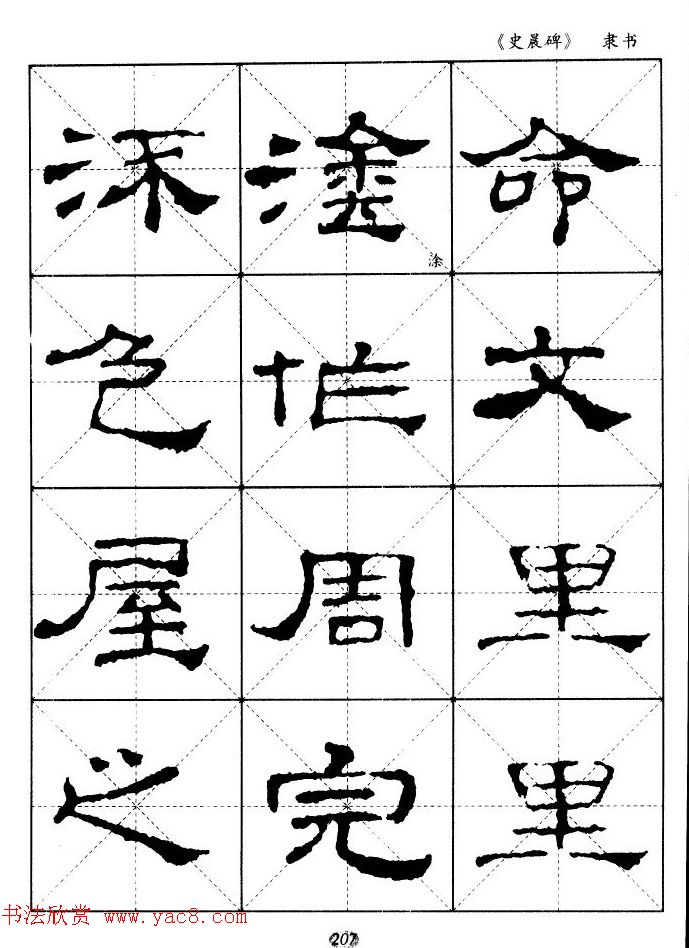 《史晨碑》 隶书
命文里里
塗作周完
涂
色屋之
书法欣赏 www.yac8.com
207